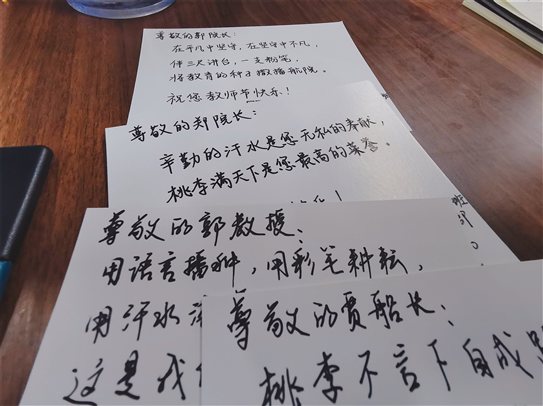 尊敬的郭院长：
在平凡中坚守，在坚守中不凡，
伴三尺讲台，一支粉笔，
将教育的种子撒播航院。
祝您教师节快乐！
尊敬的郑院长：
辛勤的汗水是您无私的奉献，
桃李满天下是您最高的荣誉。
！
尊敬的郭教授：
用语言播种，用彩笔耕耘，
用汗水
这是我
尊敬的贾船长：
桃李不言下自成